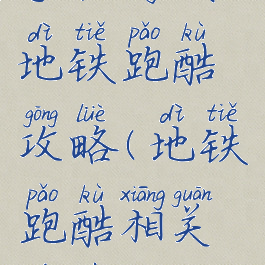 dì tiě pǎo kù
地铁跑酷
gōng lüè dì tiě
攻略(地铁
pǎo kù xiāng guān
跑酷相关